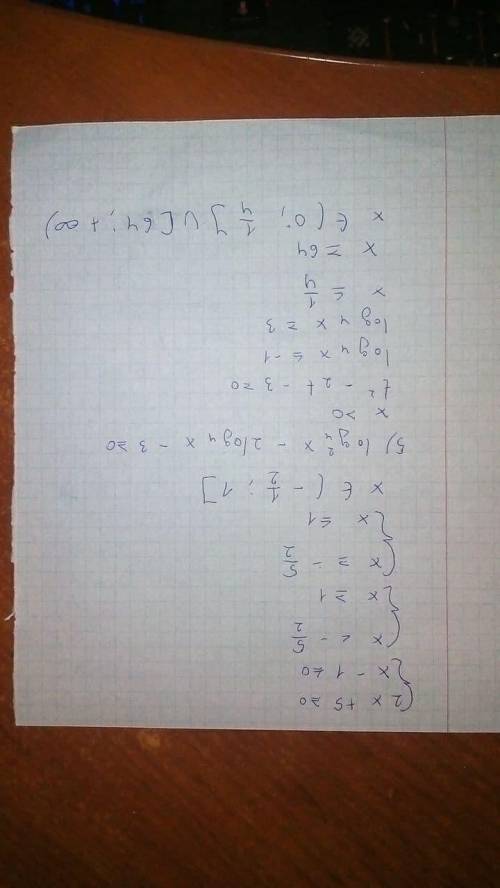 { 2x + 5 ≥ 0
{ x - 1 < 0
{ x < - 5/2
{ x ≥ 1
{ x ≥ - 5/2
{ x ≤ 1
x ∈ ( - 1/2 ; 1 ]
5) log₄² x - 2 log₄ x - 3 ≥ 0
x > 0
t² - 2t - 3 ≥ 0
log₄ x ≤ -1
log₄ x ≥ 3
x ≤ 1/4
x ≥ 64
x ∈ ( 0 ; 1/4 ] ∪ [ 64 ; + ∞ )